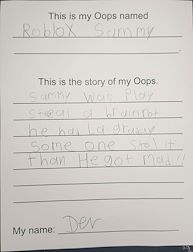 This is my Oops named
Roblox Sammy
This is the story of my Oops.
Sammy was Play
steal a brainrot
he had La grany
some one stol it
than He got mad!!
My name: Dev